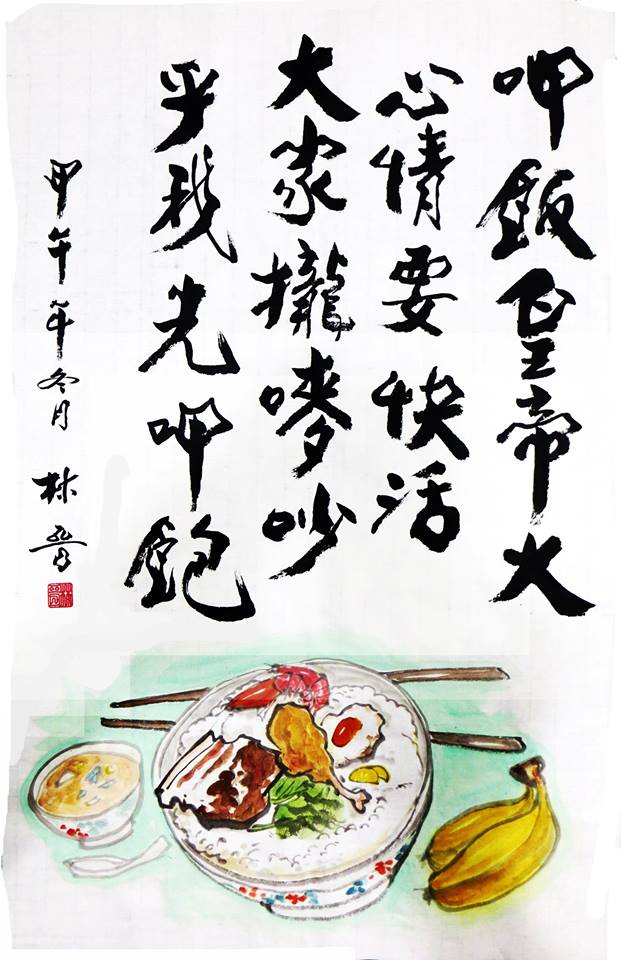 呷飯皇帝大
心情要快活
大家攏嘜吵
乎我先呷飽
甲午年冬月
林